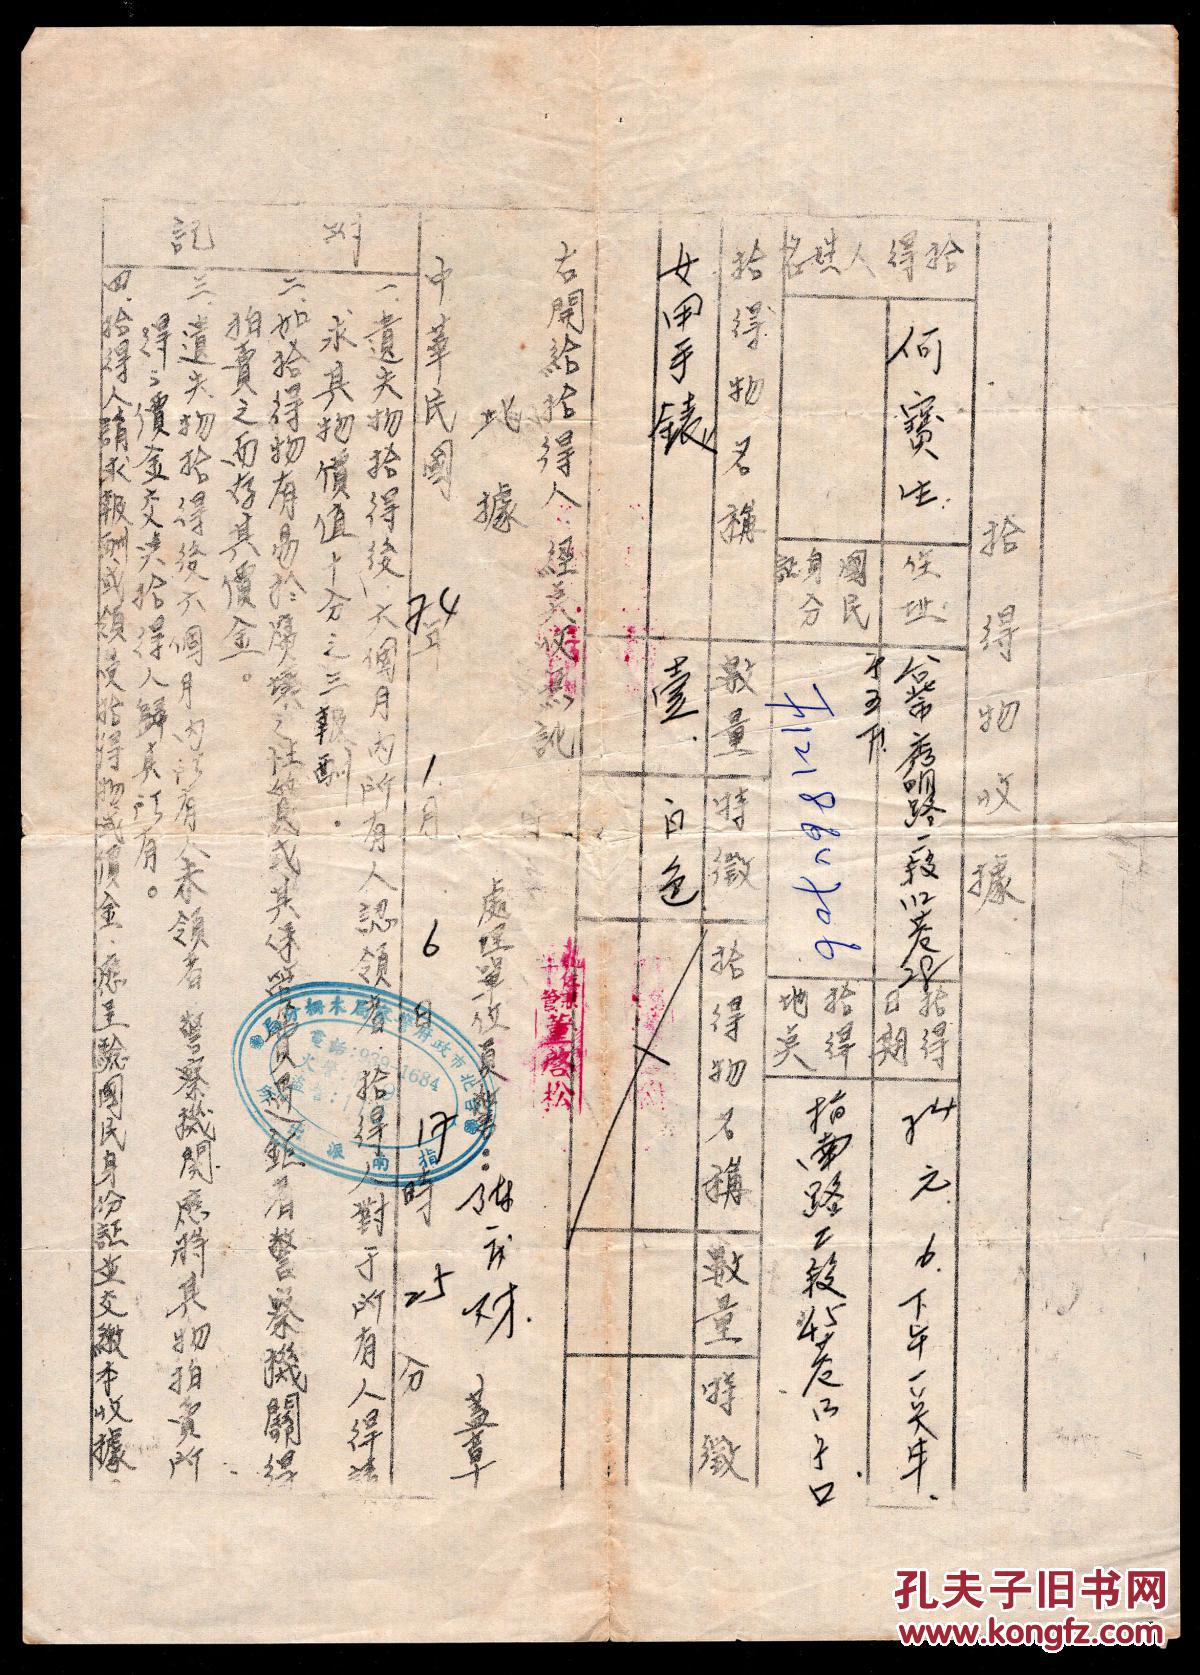 拾得物收據
拾得人姓名
何寶生
住址
木柵秀明路一段12巷28
國民身分証
拾得日期
74元.6.下午一點半.
拾得地點
指南路二段45巷
拾得物名稱
數量
特徵
拾得物名稱
數量
特徵
女用手錶
壹
白色
右開給拾得人:經點收無訛
此據
處理單位員警:
蓋章
董啓松
中華民國 74年 1月 6日 17時 25分
附記
一.遺失物拾得後,六個月內所有人認領者.拾得人對于所有人得請
求其物價值十分之三報酬.
二.如拾得物有易於腐壞之性質或其保管費用過鉅者警察機關得
拍賣之而存其價金。
三.遺失物拾得後六個月內所有人未領者警察機關應將其物拍賣所
得之價金交決拾得人歸其所有。
四.拾得人請求報酬或領受拾得物或價金.應呈驗國民身份証並交繳本收據.
台北市政府警察局木柵分局
電話:939 1684
指南派出
孔夫子旧书网
www.kongfz.com